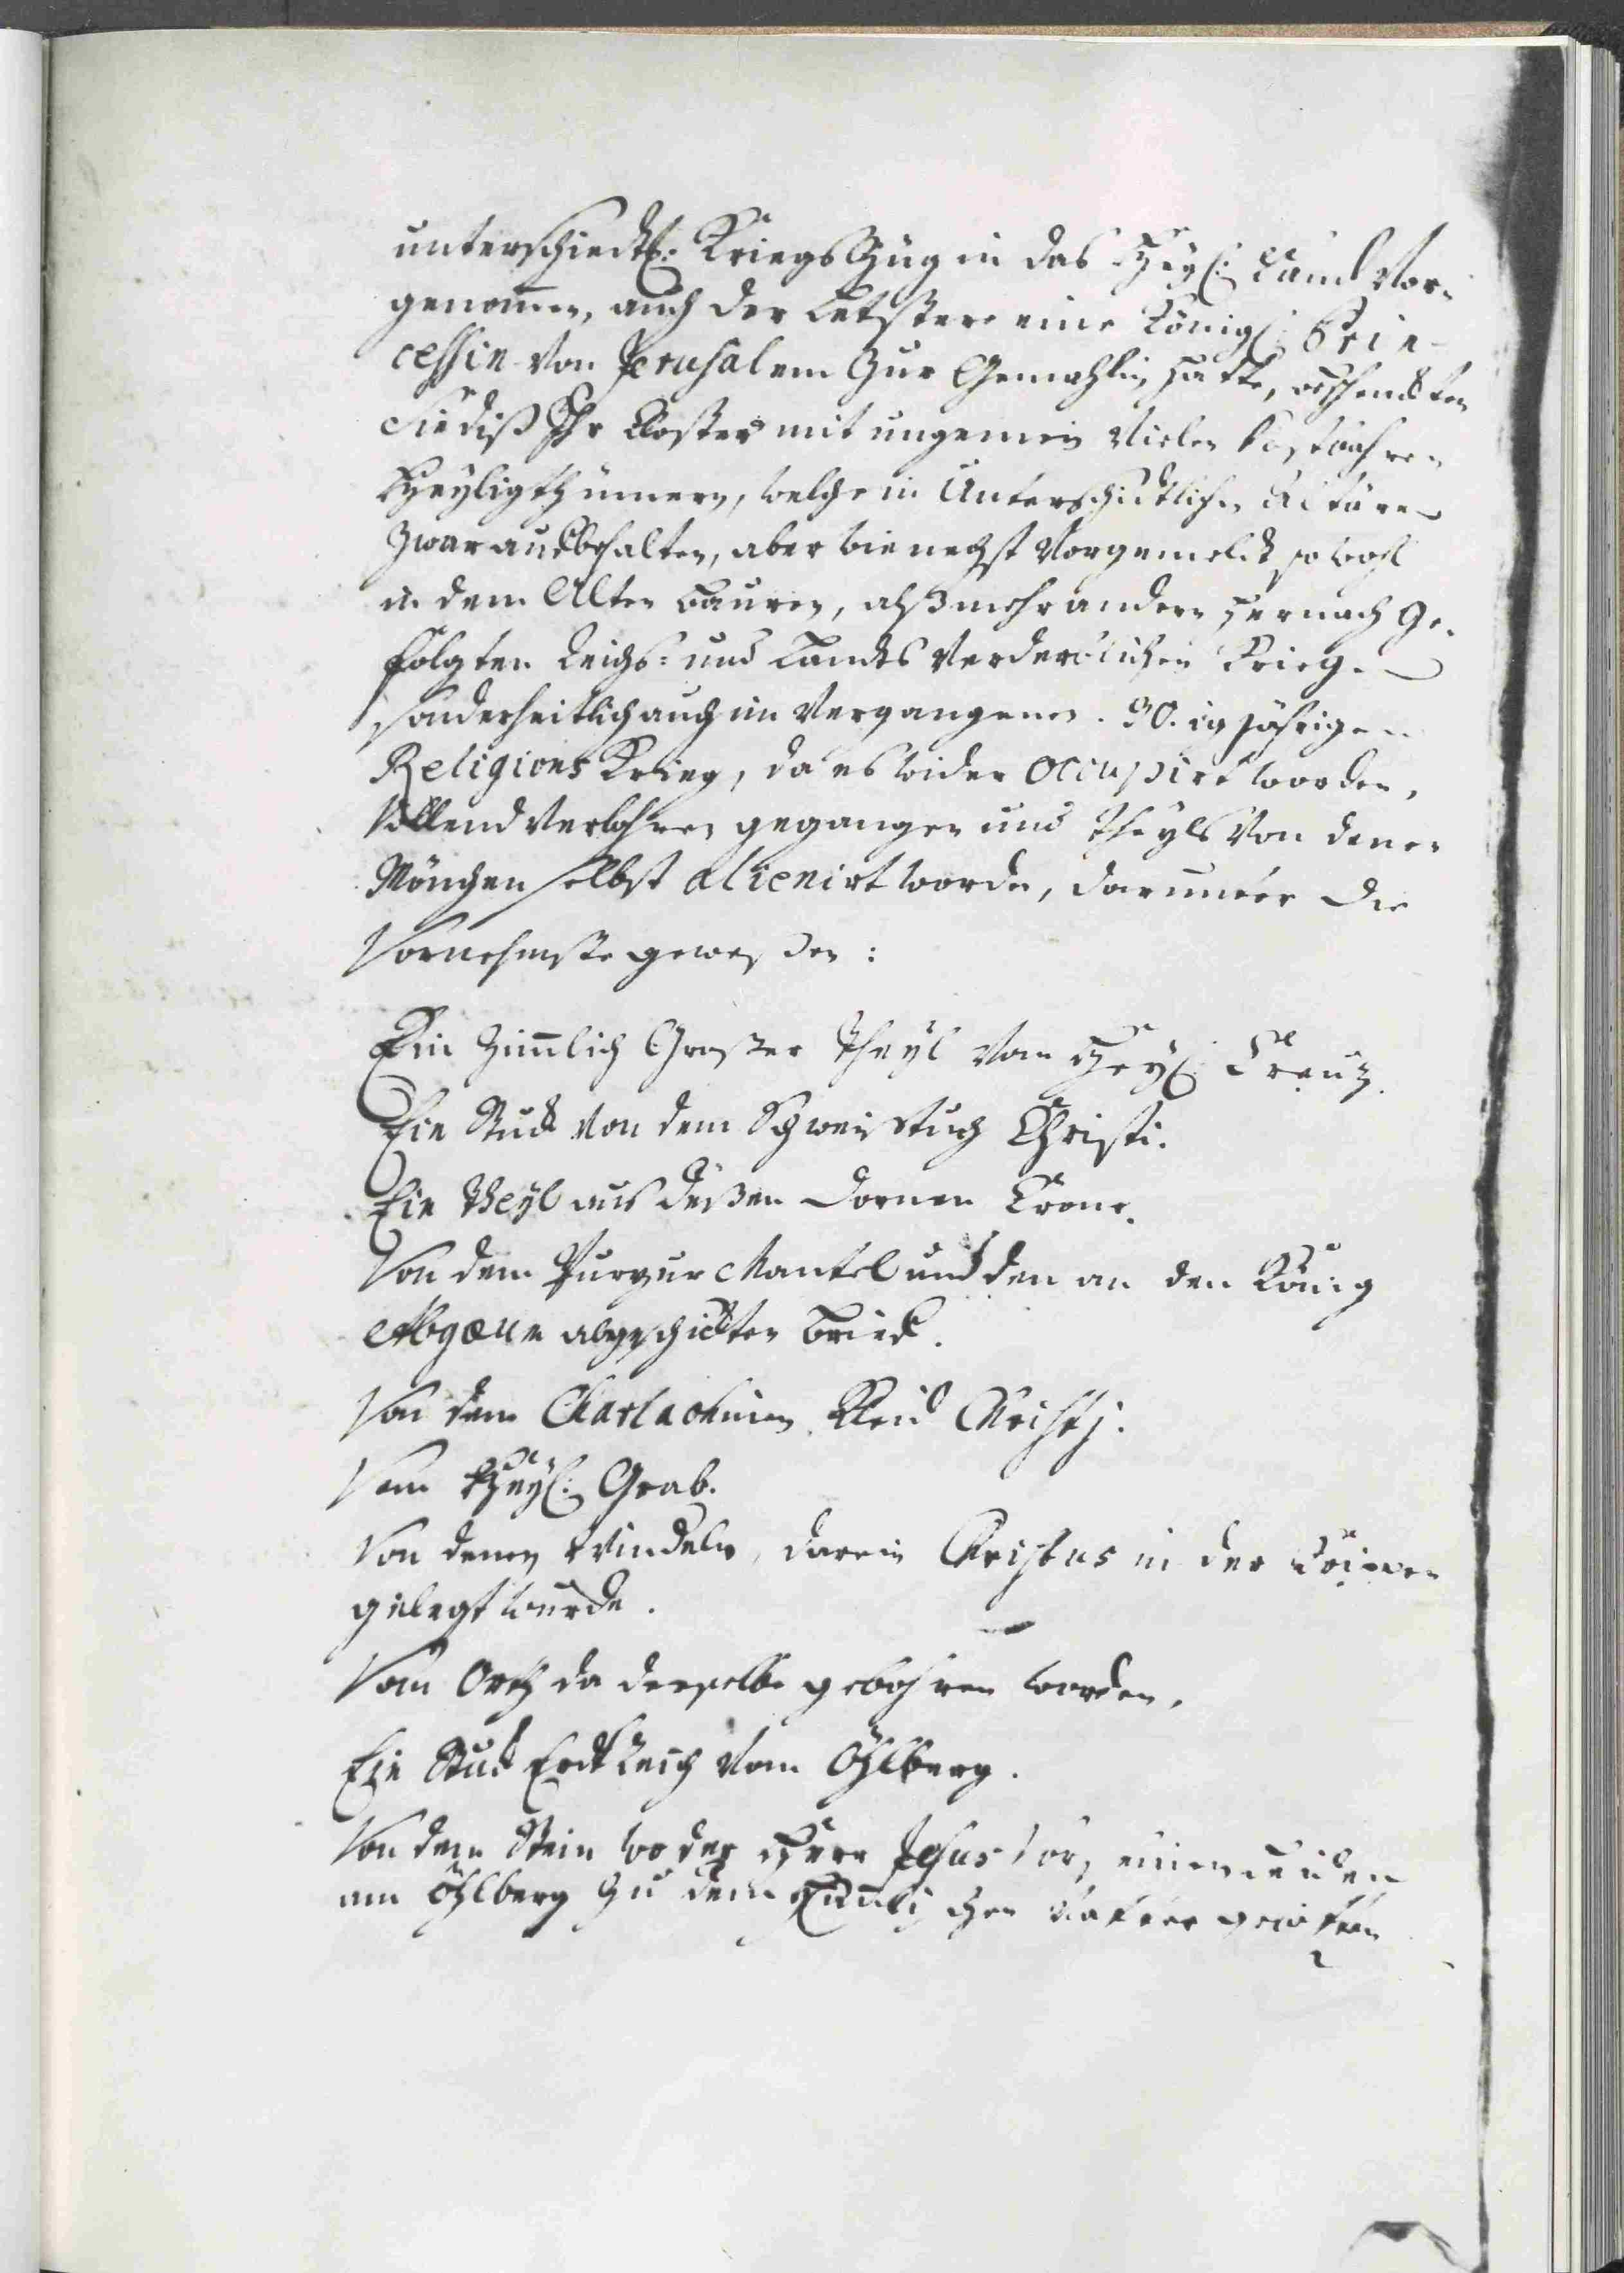 unterschiedl: Kriegs Züg in das Heyl: Land Vor-
genom̄en, auch der Letstere eine Königl: Prin-
cessin von Jerusalem Zur Gemahlin hatte, beschenckten
Sie diß Ihr Closter mit ungemein Vielen kostbahren
Heyligthümern, welche in Unterschidtlichen Altären
Zwar aufbehalten, aber wie nechst Vorgemeldt so wohl
in dem Alten Bauren, alß mehr andern hernach ge-
folgten Reichs: und Landts Verderblichen Kriegen
sonderheitlich auch im Vergangenen 30. ig jährigen
Religions Krieg, da es wider occupirt worden,
Vollend Verlohren gegangen und theyls Von denen
Mönchen selbst alienirt worden, darunter die
Vornehmste gewesen:
Ein Zim̄lich Großer theyl Vom Heyl: Creutz.
Ein Stuck Von dem Schweistuch Christi.
Ein theyl aus deßen Dornen Crone.
Von dem Purpur Mantel und den an den König
Abgarum abgeschickten Brief.
Von dem Charlachinen Kleid Christj.
Vom Heyl: Grab.
Von denen Windeln, darein Christus in der Krippen
gelegt wurde.
Vom Orth da derselbe gebohren worden.
Ein Stuck Erdtreich Vom Öhlberg.
Von dem Stein wo der Herr Jesus Vor seinem Leiden
am Öhlberg Zu dem Him̄lischen Vatter gebetten